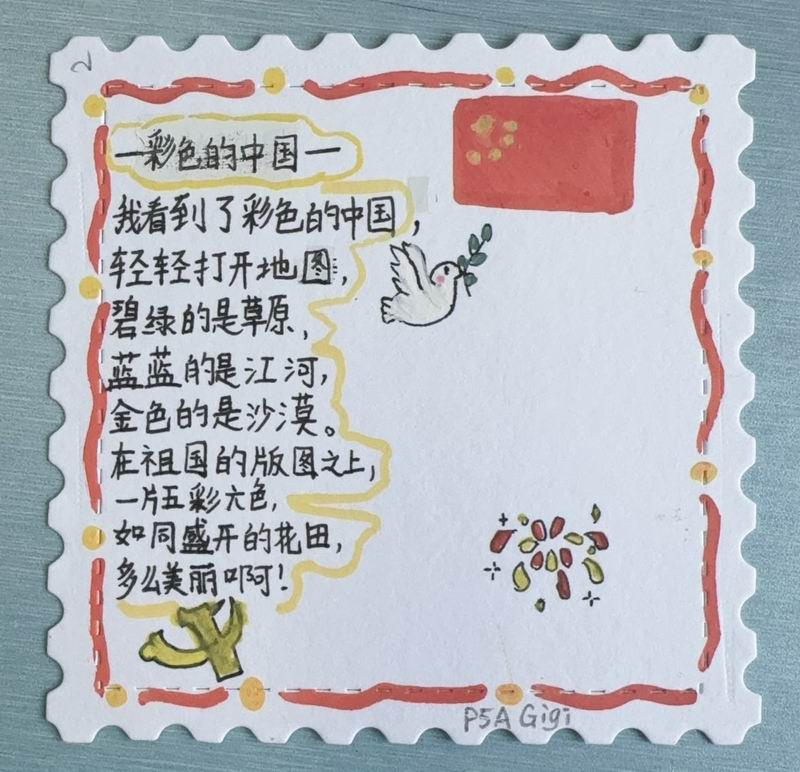 2
一彩色的中国一
我看到了彩色的中国，
轻轻打开地图，
碧绿的是草原，
蓝蓝的是江河，
金色的是沙漠。
在祖国的版图之上，
一片五彩六色，
如同盛开的花田，
多么美丽啊！
P5A Gigi